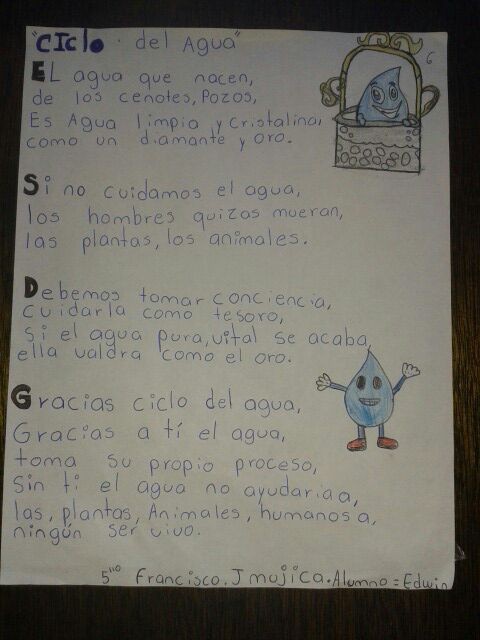 "CIclo . del Agua"
EL agua que nacen,
de los cenotes, Pozos,
Es Agua limpia y cristalina,
como un diamante y oro.
Si no cuidamos el agua,
los hombres quizas mueran,
las plantas, los animales.
Debemos tomar conciencia,
cuidarla como tesoro,
si el agua pura, vital se acaba,
ella valdra como el oro.
Gracias ciclo del agua,
Gracias a tí el agua,
toma su propio proceso,
Sin ti el agua no ayudaria a,
las, plantas, Animales, humanos a,
ningún ser vivo.
5to Francisco. J mujica. Alumno = Edwin